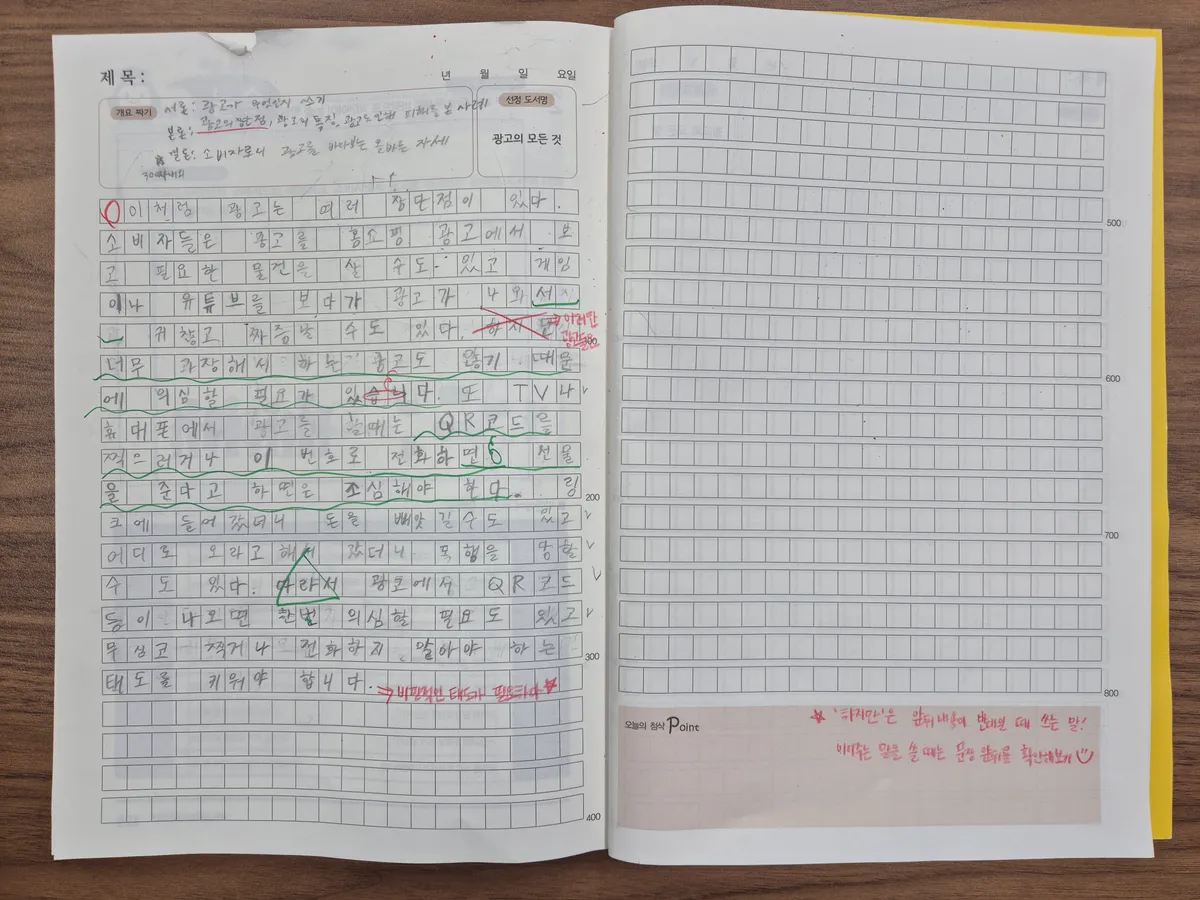 제 목 :
년 월 일 요일
개요 짜기
서론: 광고가 무엇인지 쓰기
본론: 광고의 장단점, 광고의 특징, 광고로 인해 피해를 본 사례
결론: 소비자로서 광고를 바라보는 올바른 자세
선정 도서명
광고의 모든 것
이처럼 광고는 여러 장단점이 있다.
소비자들은 광고를 홈쇼핑 광고에서 보
고 필요한 물건을 살 수도 있고 게임
이나 유튜브를 보다가 광고가 나와서
귀찮고 짜증날 수도 있다. 하지만
⇒ 이러한 광고들은
너무 과장해서 하는 광고도 많기 때문
에 의심할 필요가 있습니다. 또 TV나
휴대폰에서 광고를 할때는 QR코드를
찍으러거나 이 번호로 전화하면 선물
을 준다고 하면은 조심해야 한다. 링
크에 들어갔더니 돈을 빼앗길수도 있고
어디로 오라고 해서 갔더니 폭행을 당할
수 도 있다. 따라서 광고에서 QR코드
등이 나오면 한번 의심할 필요도 있고
무심코 찍거나 전화하지 말아야 하는
태도를 키워야 합니다.
⇒ 비판적인 태도가 필요하다
200
300
400
500
600
700
800
오늘의 첨삭 Point
'하지만'은 앞뒤 내용이 반대일 때 쓰는 말!
이어주는 말을 쓸 때는 문장 앞뒤를 확인해보기